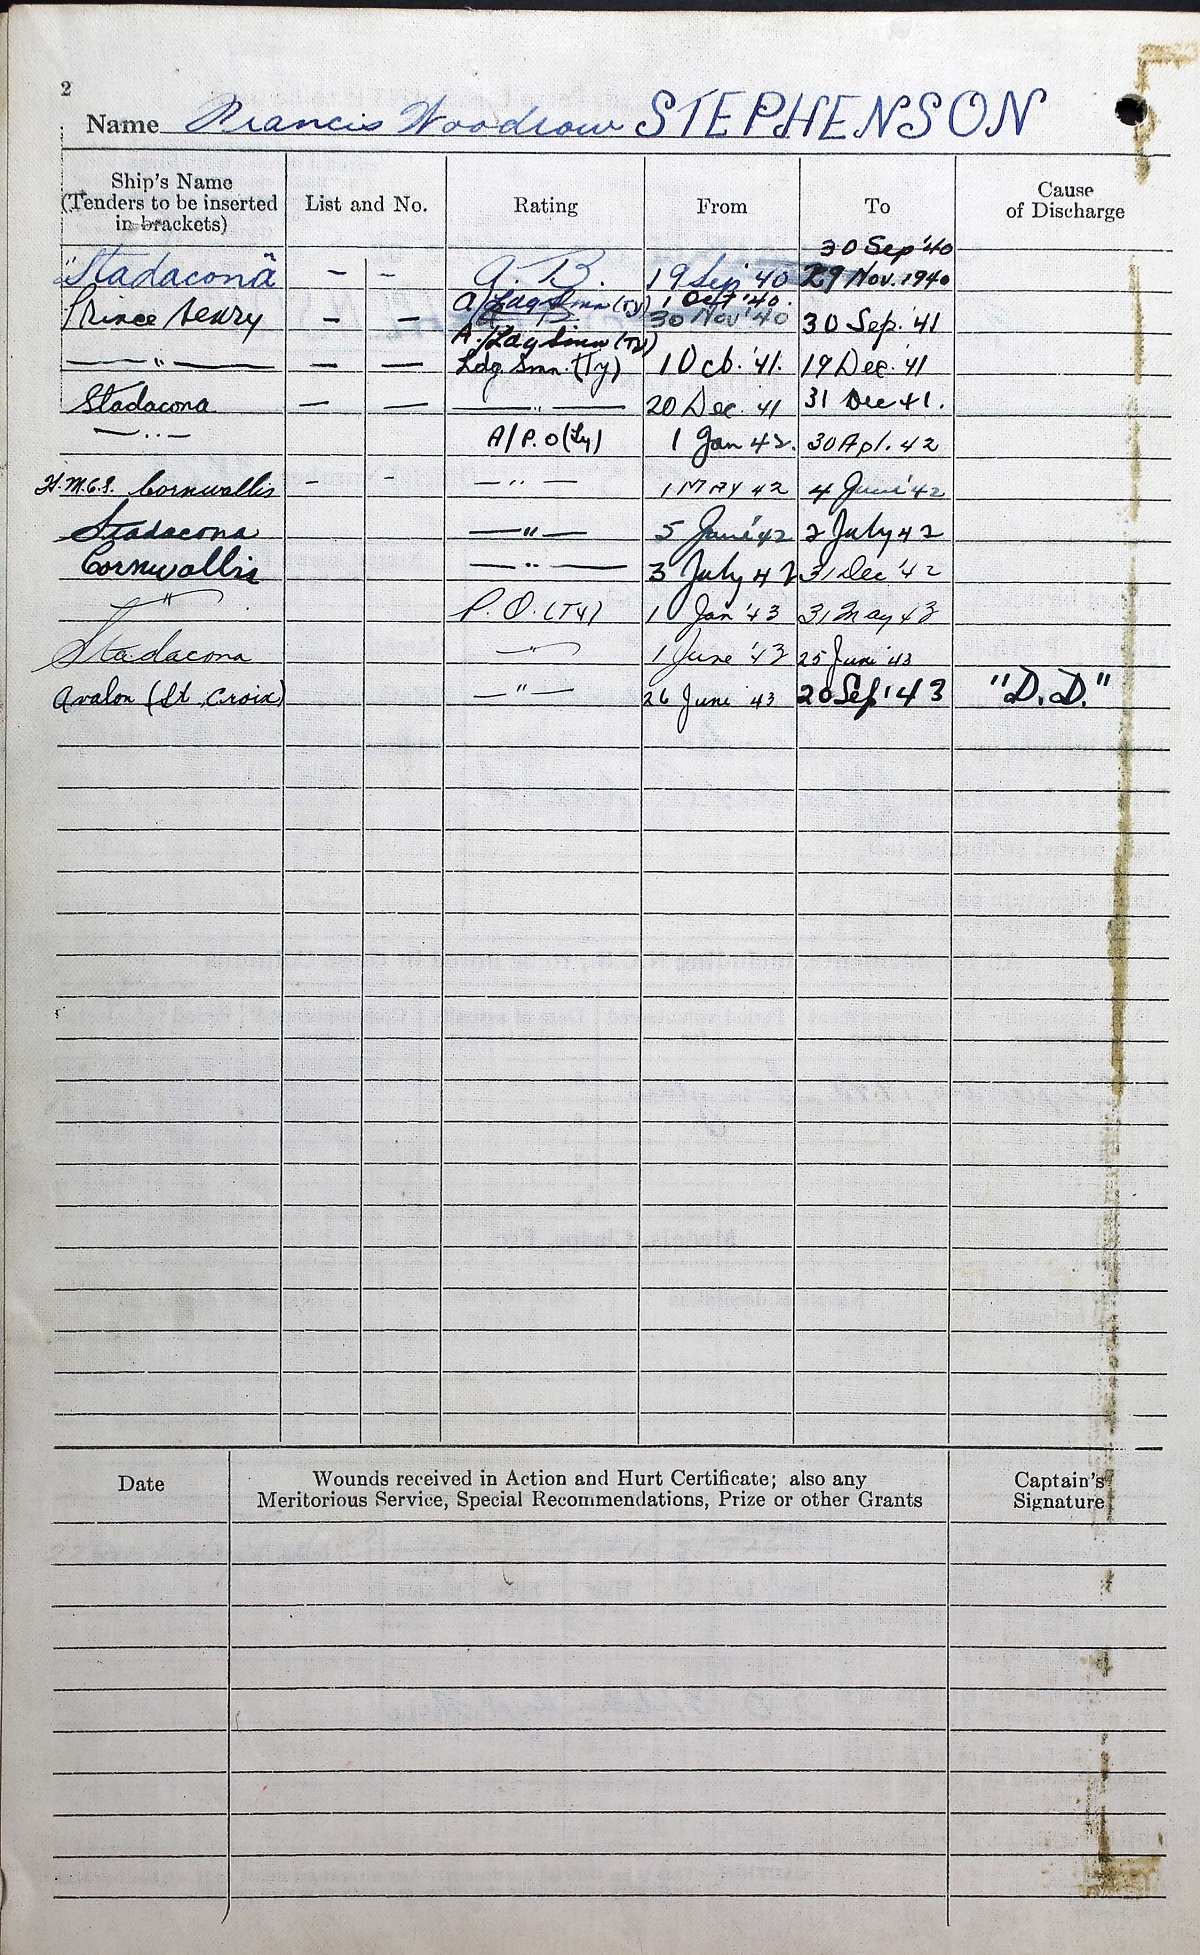 2
Name Francis Woodrow STEPHENSON
Ship's Name (Tenders to be inserted in brackets) List and No. Rating From To Cause of Discharge
30 Sep '40
"Stadacona" — — A. B. 19 Sep '40 29 Nov. 1940
A/Ldg Smn (Ty) 1 Oct '40.
Prince Henry — — A. B. 30 Nov '40 30 Sep. '41
A./Ldg Smn (Ty)
—— " —— — — Ldg. Smn. (Ty) 1 Oct. '41. 19 Dec. '41
Stadacona — — —— " —— 20 Dec. 41 31 Dec 41.
— " — A/P.O (Ty) 1 Jan 42. 30 Apl. 42
H.M.C.S. Cornwallis - - — " — 1 MAY 42 4 June '42
Stadacona — " — 5 June '42 2 July 42
Cornwallis — " — 3 July 42 31 Dec '42
— " — P.O. (Ty) 1 Jan '43 31 May 43
Stadacona — " — 1 June '43 25 June '43
Avalon (St. Croix) — " — 26 June '43 20 Sep '43 "D.D."
Date Wounds received in Action and Hurt Certificate; also any Captain's
Meritorious Service, Special Recommendations, Prize or other Grants Signature